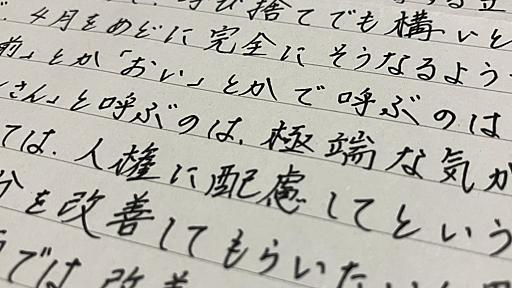 呼び捨てでも構いと
4月をめどに完全にそうなるよう
前」とか「おい」とかで呼ぶのは
さん」と呼ぶのは、極端な気が
ては、人権に配慮してという
分を改善してもらいたい
では 改善